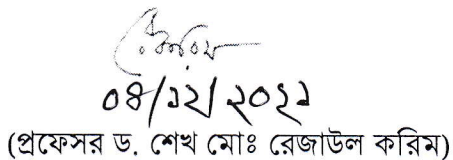 রেকরিম
০৪/১২/২০২১
(প্রফেসর ড. শেখ মোঃ রেজাউল করিম)